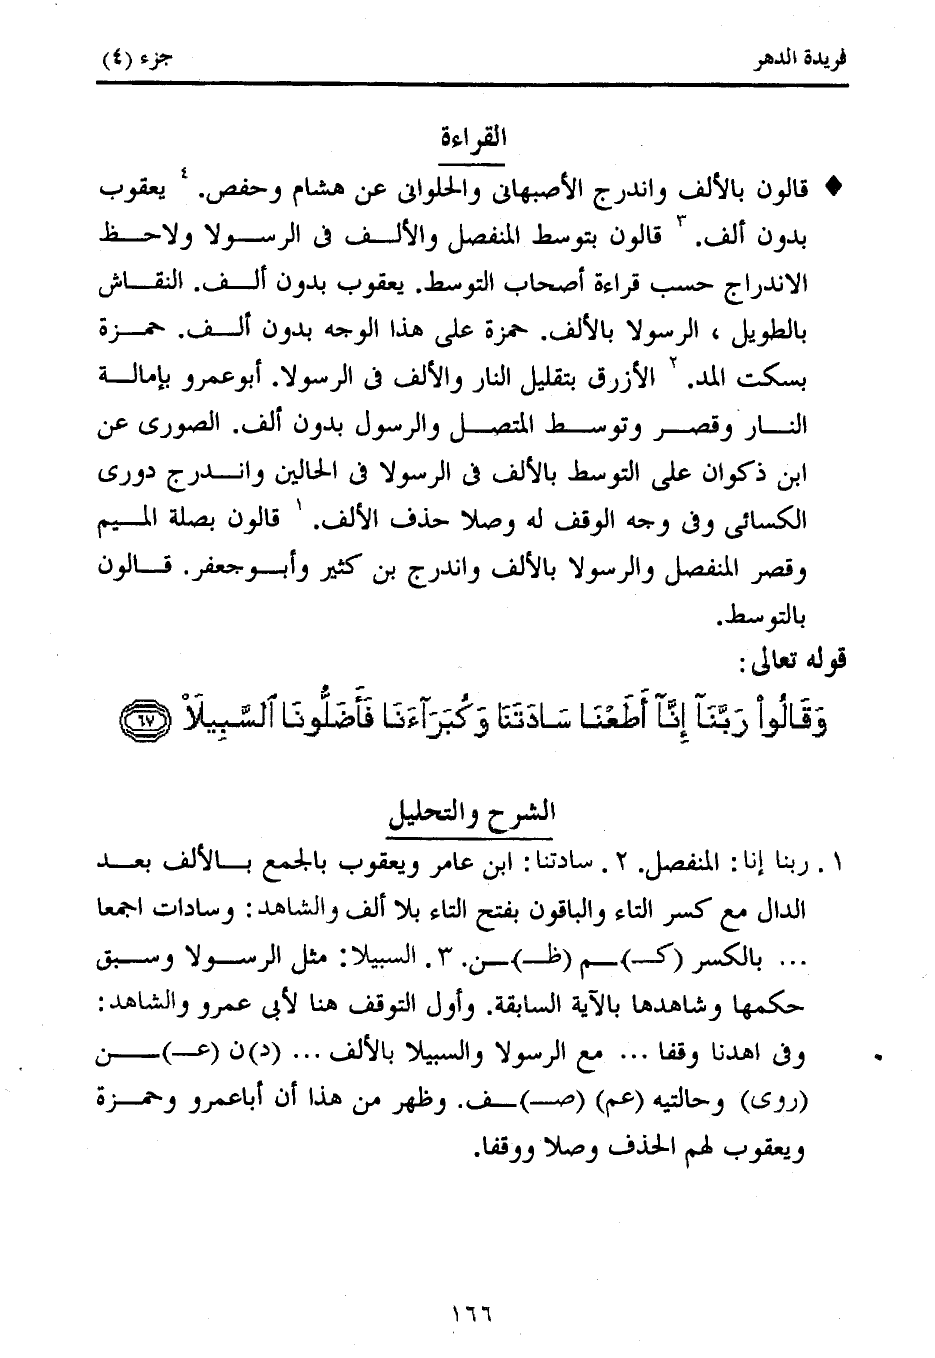 فريدة الدهر
جزء (٤)
القراءة
♦ قالون بالألف واندرج الأصبهانى والحلوانى عن هشام وحفص. ٤ يعقوب
بدون ألف. ٣ قالون بتوسط المنفصل والألف فى الرسولا ولاحظ
الاندراج حسب قراءة أصحاب التوسط. يعقوب بدون ألف. النقاش
بالطويل ، الرسولا بالألف. حمزة على هذا الوجه بدون ألف. حمزة
بسكت المد. ٢ الأزرق بتقليل النار والألف فى الرسولا. أبوعمرو بإمالة
النار وقصر وتوسط المتصل والرسول بدون ألف. الصورى عن
ابن ذكوان على التوسط بالألف فى الرسولا فى الحالين واندرج دورى
الكسائى وفى وجه الوقف له وصلا حذف الألف. ١ قالون بصلة الميم
وقصر المنفصل والرسولا بالألف واندرج بن كثير وأبوجعفر. قالون
بالتوسط.
قوله تعالى:
وَقَالُواْ رَبَّنَآ إِنَّآ أَطَعْنَا سَادَتَنَا وَكُبَرَآءَنَا فَأَضَلُّونَا ٱلسَّبِيلَا۠ ٦٧
الشرح والتحليل
١. ربنا إنا: المنفصل. ٢. سادتنا: ابن عامر ويعقوب بالجمع بالألف بعد
الدال مع كسر التاء والباقون بفتح التاء بلا ألف والشاهد: وسادات اجمعا
... بالكسر (كـ)ـم (ظـ)ـن. ٣. السبيلا: مثل الرسولا وسبق
حكمها وشاهدها بالآية السابقة. وأول التوقف هنا لأبى عمرو والشاهد:
وفى اهدنا وقفا ... مع الرسولا والسبيلا بالألف ... (د)ن (عـ)ـن
(روى) وحالتيه (عم) (صـ)ـف. وظهر من هذا أن أباعمرو وحمزة
ويعقوب لهم الحذف وصلا ووقفا.
١٦٦